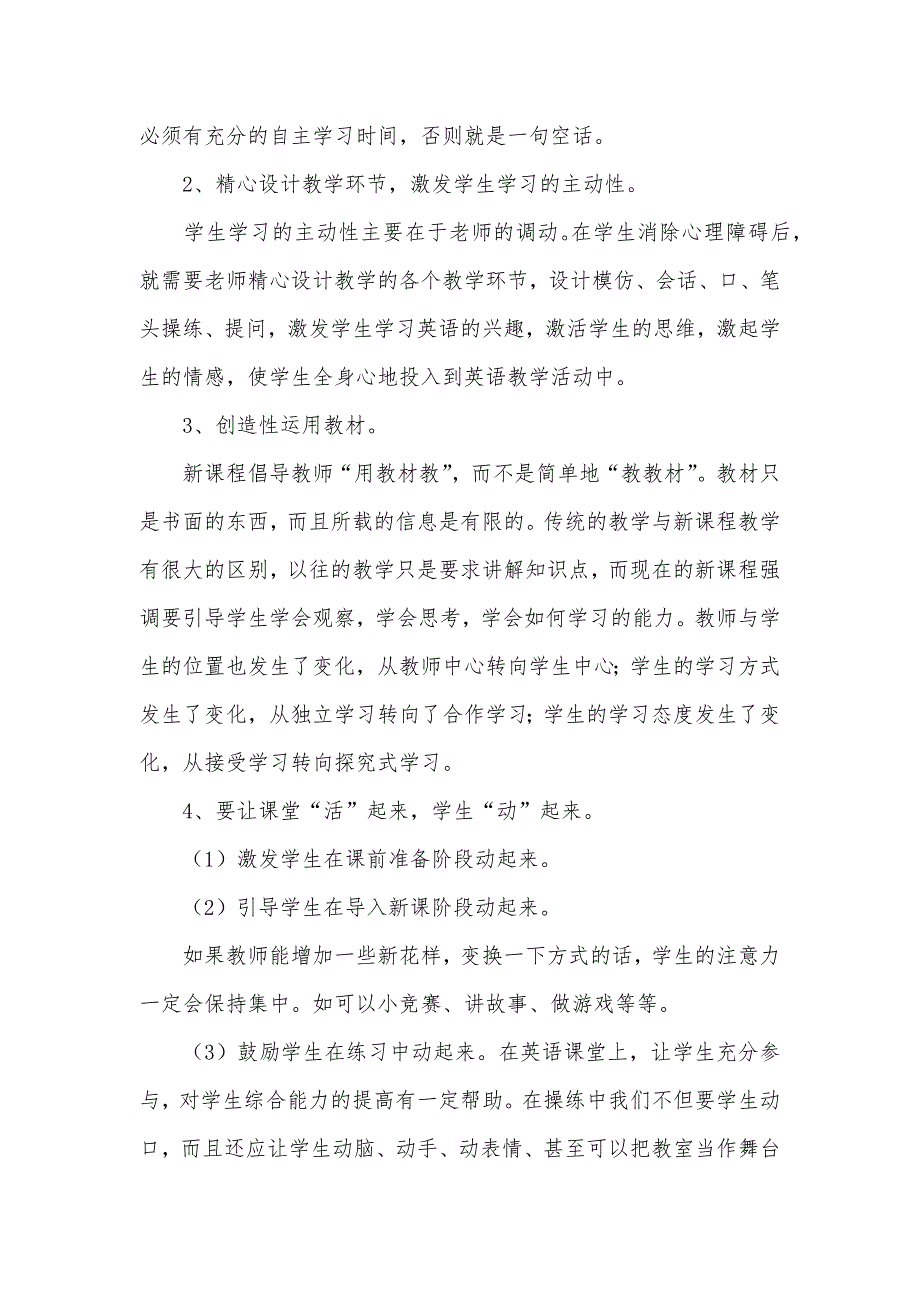 必须有充分的自主学习时间，否则就是一句空话。
2、精心设计教学环节，激发学生学习的主动性。
学生学习的主动性主要在于老师的调动。在学生消除心理障碍后，
就需要老师精心设计教学的各个教学环节，设计模仿、会话、口、笔
头操练、提问，激发学生学习英语的兴趣，激活学生的思维，激起学
生的情感，使学生全身心地投入到英语教学活动中。
3、创造性运用教材。
新课程倡导教师“用教材教”，而不是简单地“教教材”。教材只
是书面的东西，而且所载的信息是有限的。传统的教学与新课程教学
有很大的区别，以往的教学只是要求讲解知识点，而现在的新课程强
调要引导学生学会观察，学会思考，学会如何学习的能力。教师与学
生的位置也发生了变化，从教师中心转向学生中心；学生的学习方式
发生了变化，从独立学习转向了合作学习；学生的学习态度发生了变
化，从接受学习转向探究式学习。
4、要让课堂“活”起来，学生“动”起来。
（1）激发学生在课前准备阶段动起来。
（2）引导学生在导入新课阶段动起来。
如果教师能增加一些新花样，变换一下方式的话，学生的注意力
一定会保持集中。如可以小竞赛、讲故事、做游戏等等。
（3）鼓励学生在练习中动起来。在英语课堂上，让学生充分参
与，对学生综合能力的提高有一定帮助。在操练中我们不但要学生动
口，而且还应让学生动脑、动手、动表情、甚至可以把教室当作舞台